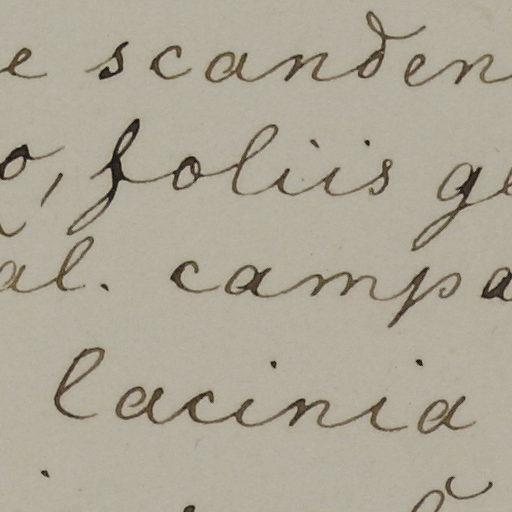 e scanden
o, foliis ge
al. campa
lacinia